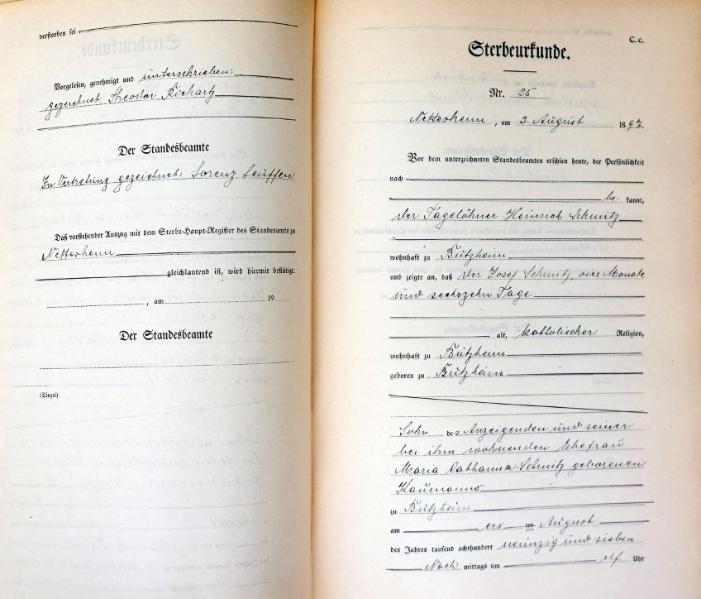 verstorben sei
Vorgelesen, genehmigt und unterschrieben:
gezeichnet: Theodor Richartz
Der Standesbeamte
In Vertretung gezeichnet: Lorenz Leuffen
Daß vorstehender Auszug mit dem Sterbe-Haupt-Register des Standesamts zu
Nettersheim
gleichlautend ist, wird hiermit bestätigt.
, am 19
Der Standesbeamte
(Siegel)
C. c.
Sterbeurkunde.
Nr. 25
, am 2. August 1897.
Vor dem unterzeichneten Standesbeamten erschien heute, der Persönlichkeit
nach
be kannt,
der Tagelöhner Heinrich Schmitz
wohnhaft zu
und zeigte an, daß der Josef Schmitz, vier Monate
und sechszehn Tage
alt, katholischer Religion,
wohnhaft zu
geboren zu
Sohn des Anzeigenden und seiner
bei ihm wohnenden Ehefrau
Maria Catharina Schmitz geborenen
zu
am ers ten August
des Jahres tausend achthundert neunzig und sieben
Nach mittags um elf Uhr